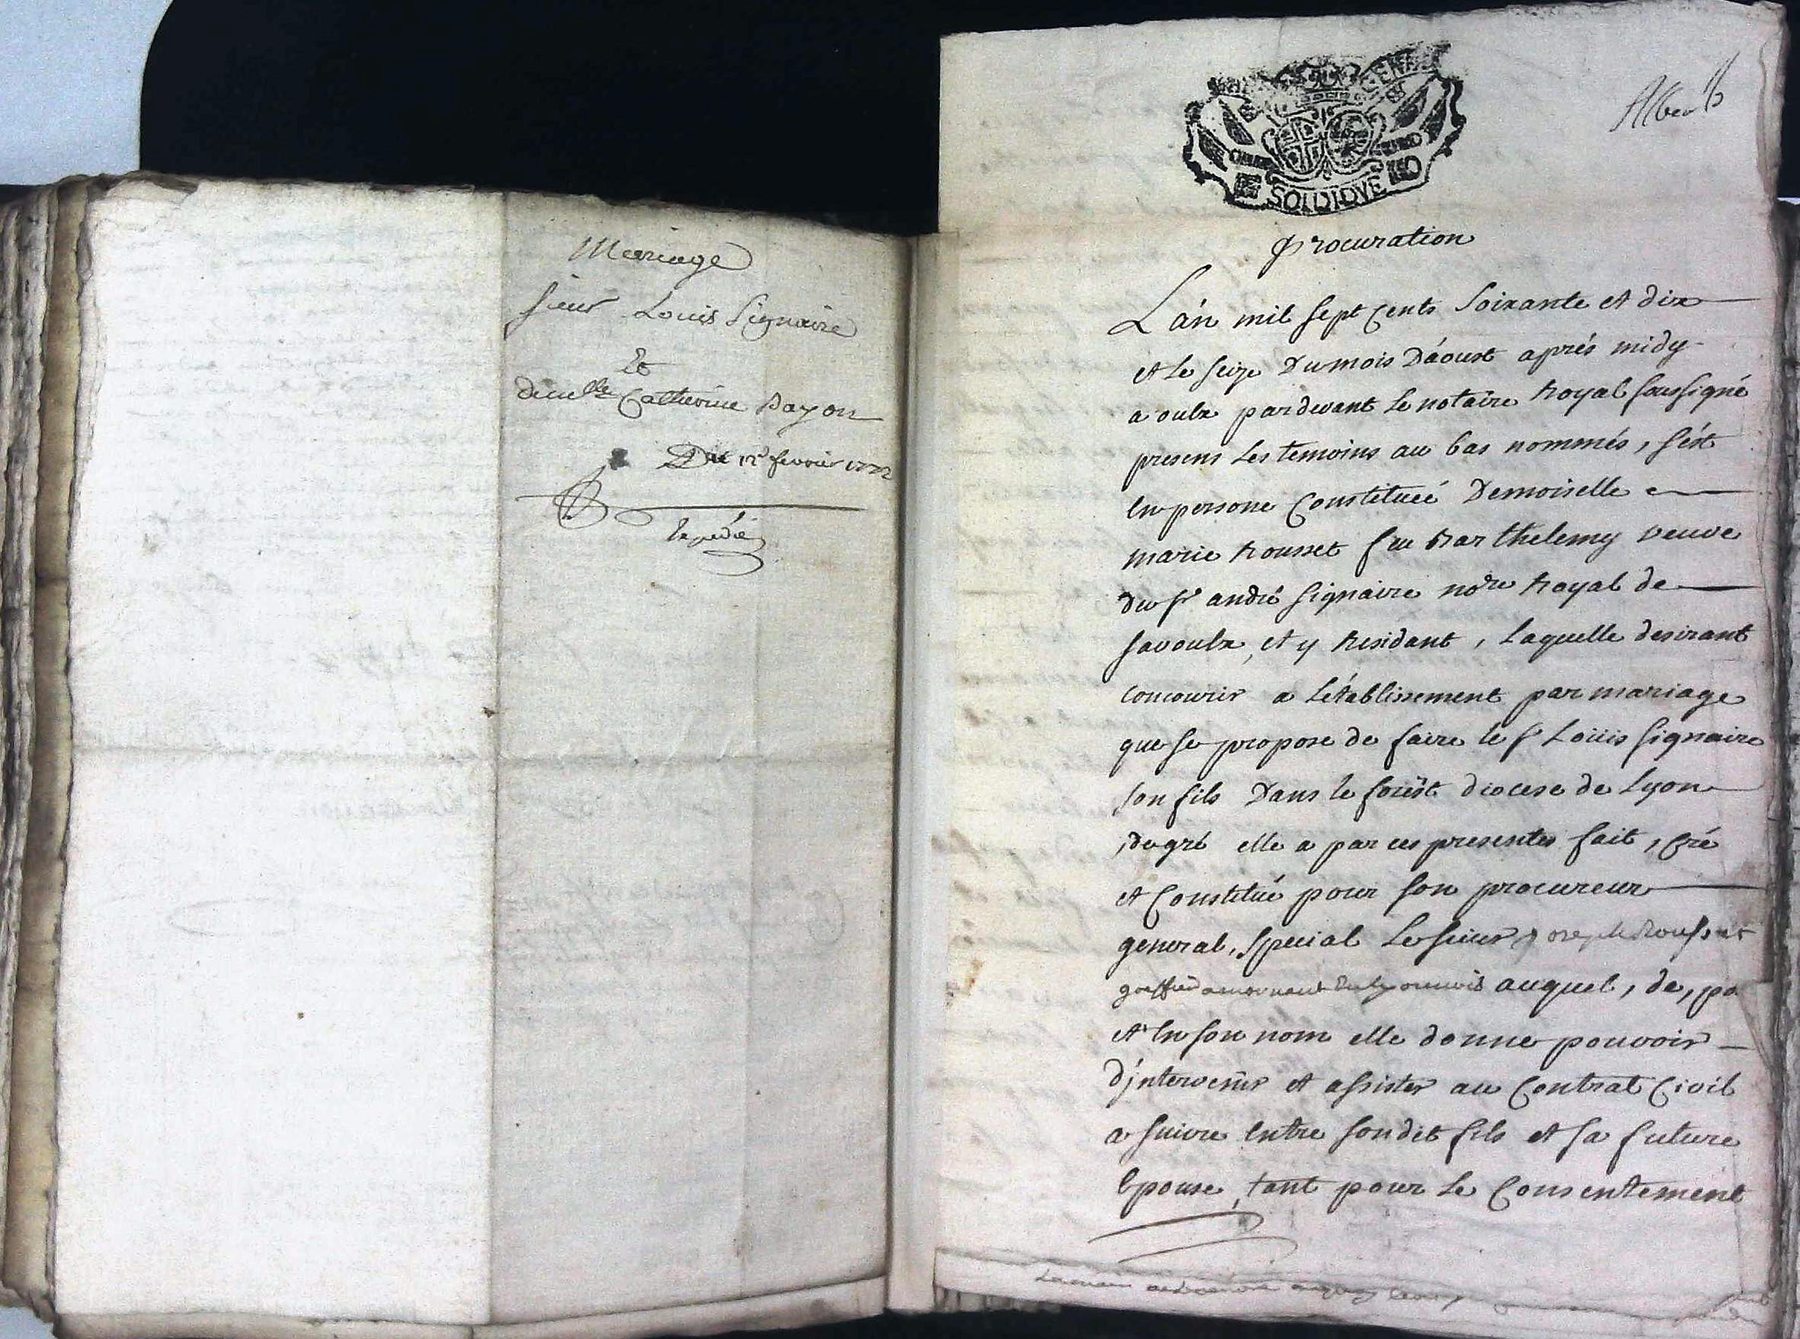 Mariage
sieur Louis Signaire
Et
demlle Catherine Payon
Du 12 fevrier 1772
Expédié
SOLDIDVE
Procuration
L'án mil sept cents soixante et dix
et le seize du mois d'áoust aprés midy
a oulx pardevant le notaire Royal soussigné
presens les temoins au bas nommés, s'ést
en persone Constituée Demoiselle
marie Rousset feu Barthelemy veuve
du sr andré signaire nore Royal de
savoulx, et y Residant, laquelle desirant
concourir a l'établissement par mariage
que se propose de faire le sr Loüis signaire
son fils Dans le forést diocese de Lyon
de gré elle a par ces presentes fait, Cré
et Constitué pour son procureur
general, special le sieur joseph Rousset
greffier a mornant en Lyonnois auquel, de, pa
et en son nom elle donne pouvoir
d'jntervenir et assister au Contrat Civil
a suivre entre son dit fils et sa future
Epouse, tant pour le Consentement